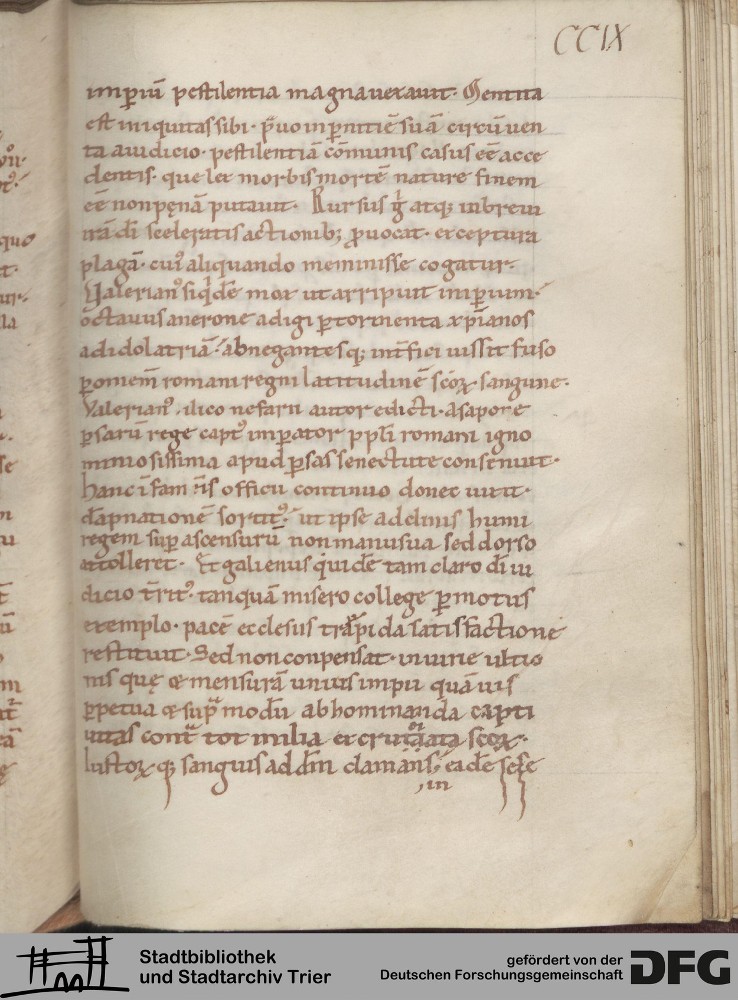 CCIX
imperiū pestilentia magna vexavit. Mentita
est iniquitas sibi. p̄vo in p̄nitiē suā circūven
ta iudicio. pestilentiā cōmunis casus eē acce
dentis. que let morbis mortē nature finem
eē non pęnā putavit. Rursus ḡ atq; inbrevi
irā dī sceleratis actionib; ꝓvocat. exceptura
plagā. cuiꝰ aliquando meminisse cogatur.
Valerianꝰ siq̇dē mox ut arripuit imperium.
octavus anerone adigi ꝑ tormenta xp̄ianos
ad idolatriā. abnegantesq; int̄fici iussit fuso
ꝑ omem̄ romani regni latitudinē sc̄oꝝ sangune.
Valerianꝰ. ilico nefarii autor edicti. asapore
ꝑsarū rege captꝰ imꝑator ppl̄i romani igno
miniosissima apud ꝑsas senectute consenuit.
hanc īfam n̄is officii continuo donec vixit.
dāpnationē sortitꝰ. ut ipse adclinis humi
regem suꝑ ascensurū non manu sua sed dorso
attolleret. Et galienus quidē tam claro dī iu
dicio t̄ritꝰ. tanquā misero college ꝑmotus
exemplo. pacē ecclesiis trāpida satisfactione
restituit. Sed non conpensat. iniurie ultio
nis quę & mensurā unius impii quāvis
ꝑpetua & sup̄ modū abhominanda capti
vitas cont̄ tot milia excruciata sc̄oꝝ.
lustoꝝq; sanguis ad dm̄ clamans; eadē sese
in
Stadtbibliothek
und Stadtarchiv Trier
gefördert von der
Deutschen Forschungsgemeinschaft
DFG